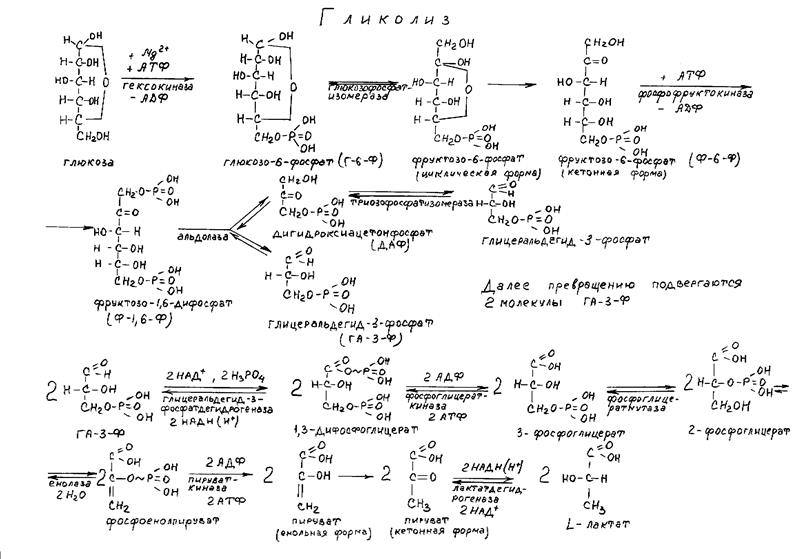 Гликолиз
+ Mg2+
+ АТФ
гексокиназа
- АДФ
глюкоза
глюкозо-6-фосфат (Г-6-Ф)
глюкозофосфат-
изомераза
фруктозо-6-фосфат
(циклическая форма)
фруктозо-6-фосфат (Ф-6-Ф)
(кетонная форма)
+ АТФ
фосфофруктокиназа
- АДФ
фруктозо-1,6-дифосфат
(Ф-1,6-Ф)
альдолаза
дигидроксиацетонфосфат
(ДАФ)
триозофосфатизомераза
глицеральдегид-3-фосфат
глицеральдегид-3-фосфат
(ГА-3-Ф)
Далее превращению подвергаются
2 молекулы ГА-3-Ф
2
ГА-3-Ф
2НАД+, 2H3PO4
глицеральдегид-3-
фосфатдегидрогеназа
2НАДН(Н+)
2
1,3-дифосфоглицерат
2АДФ
фосфоглицерат-
киназа
2 АТФ
2
3-фосфоглицерат
фосфоглице-
ратмутаза
2
2-фосфоглицерат
енолаза
2H2O
2
фосфоенолпируват
2АДФ
пируват-
киназа
2АТФ
2
пируват
(енольная форма)
2
пируват
(кетонная форма)
2НАДН(Н+)
лактатдегид-
рогеназа
2НАД+
2
L-лактат